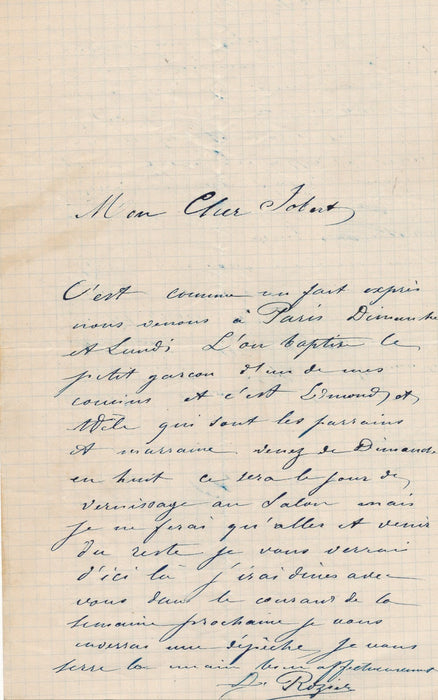 Mon Cher Jobert
C'est comme un fait exprès
nous venons à Paris Dimanche
et Lundi L'on baptise le
petit garçon d'un de mes
cousins et c'est Edmond et
qui sont les parrains
et marraine venez de Dimanche
en huit ce sera le jour de
vernissage au Salon mais
je ne ferai qu'aller et venir
du reste je vous verrai
d'ici là j'irai dîner avec
vous dans le courant de la
semaine prochaine je vous
enverrai une dépêche, je vous
serre la main bien affectueusement